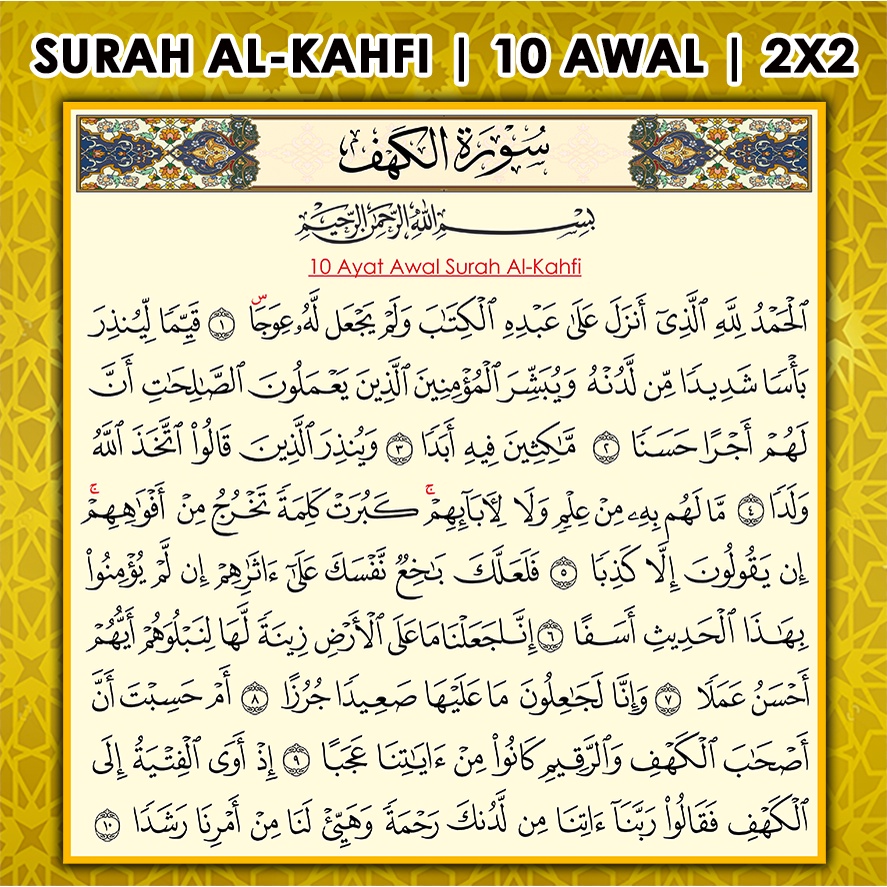 SURAH AL-KAHFI | 10 AWAL | 2X2
سُورَةُ الكَهْفِ
بِسْمِ اللَّهِ الرَّحْمَٰنِ الرَّحِيمِ
10 Ayat Awal Surah Al-Kahfi
ٱلْحَمْدُ لِلَّهِ ٱلَّذِىٓ أَنزَلَ عَلَىٰ عَبْدِهِ ٱلْكِتَٰبَ وَلَمْ يَجْعَل لَّهُۥ عِوَجَاۜ ١ قَيِّمًا لِّيُنذِرَ
بَأْسًا شَدِيدًا مِّن لَّدُنْهُ وَيُبَشِّرَ ٱلْمُؤْمِنِينَ ٱلَّذِينَ يَعْمَلُونَ ٱلصَّٰلِحَٰتِ أَنَّ
لَهُمْ أَجْرًا حَسَنًا ٢ مَّٰكِثِينَ فِيهِ أَبَدًا ٣ وَيُنذِرَ ٱلَّذِينَ قَالُوا۟ ٱتَّخَذَ ٱللَّهُ
وَلَدًا ٤ مَّا لَهُم بِهِۦ مِنْ عِلْمٍ وَلَا لِـَٔابَآئِهِمْۚ كَبُرَتْ كَلِمَةً تَخْرُجُ مِنْ أَفْوَٰهِهِمْۚ
إِن يَقُولُونَ إِلَّا كَذِبًا ٥ فَلَعَلَّكَ بَٰخِعٌ نَّفْسَكَ عَلَىٰٓ ءَاثَٰرِهِمْ إِن لَّمْ يُؤْمِنُوا۟
بِهَٰذَا ٱلْحَدِيثِ أَسَفًا ٦ إِنَّا جَعَلْنَا مَا عَلَى ٱلْأَرْضِ زِينَةً لَّهَا لِنَبْلُوَهُمْ أَيُّهُمْ
أَحْسَنُ عَمَلًا ٧ وَإِنَّا لَجَٰعِلُونَ مَا عَلَيْهَا صَعِيدًا جُرُزًا ٨ أَمْ حَسِبْتَ أَنَّ
أَصْحَٰبَ ٱلْكَهْفِ وَٱلرَّقِيمِ كَانُوا۟ مِنْ ءَايَٰتِنَا عَجَبًا ٩ إِذْ أَوَى ٱلْفِتْيَةُ إِلَى
ٱلْكَهْفِ فَقَالُوا۟ رَبَّنَآ ءَاتِنَا مِن لَّدُنكَ رَحْمَةً وَهَيِّئْ لَنَا مِنْ أَمْرِنَا رَشَدًا ١٠